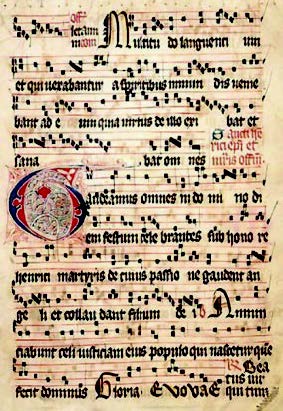 Multitudo languenti um
et qui vexabantur a spiritibus immun dis venie
bant ad e um quia virtus de illo exi bat et
sana bat om nes
Gaudeamus omnes in do mi no di
em festum cele brantes sub hono re
henrici martyris de cuius passio ne gaudent an
ge li et collau dant filium de i Annun
ciabunt celi iusticiam eius populo qui nascetur que
fecit dominus Gloria Evovae